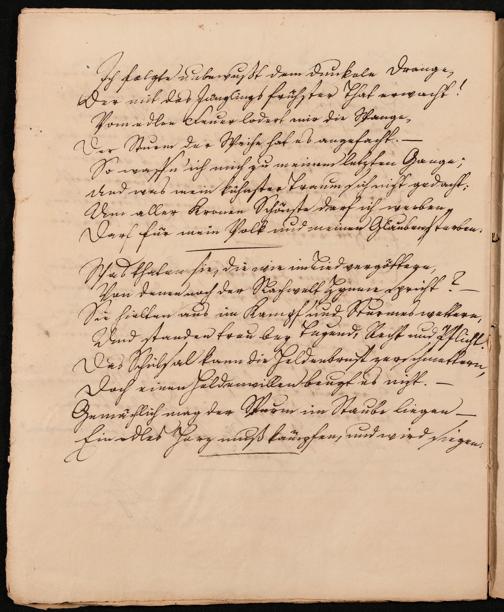 Ich folgte unbewußt dem dunkeln Drange,
Der mit des Jünglings frühster That erwacht!
Vom edlen Feuer lodert mir die Wange,
Der Sturm der Weihe hat es angefacht. —
So waffn' ich mich zu meinem letzten Gange;
Und was mein kühnster Traum sich nicht gedacht:
Um aller Kronen Schönste darf ich werben,
Darf für mein Volk und meinen Glauben sterben.
Was thaten sie, die wir im Lied vergöttern,
Von denen noch der Nachwelt Hymne spricht? —
Sie hielten aus in Kampf und Sturmeswettern,
Und standen treu bey Tugend, Recht und Pflicht.
Das Schiksal kann die Heldenbrust zerschmettern,
Doch einen Heldenwillen beugt es nicht. —
Gemächlich mag der Wurm im Staube liegen —
Ein edles Herz muß kämpfen, und wird siegen.